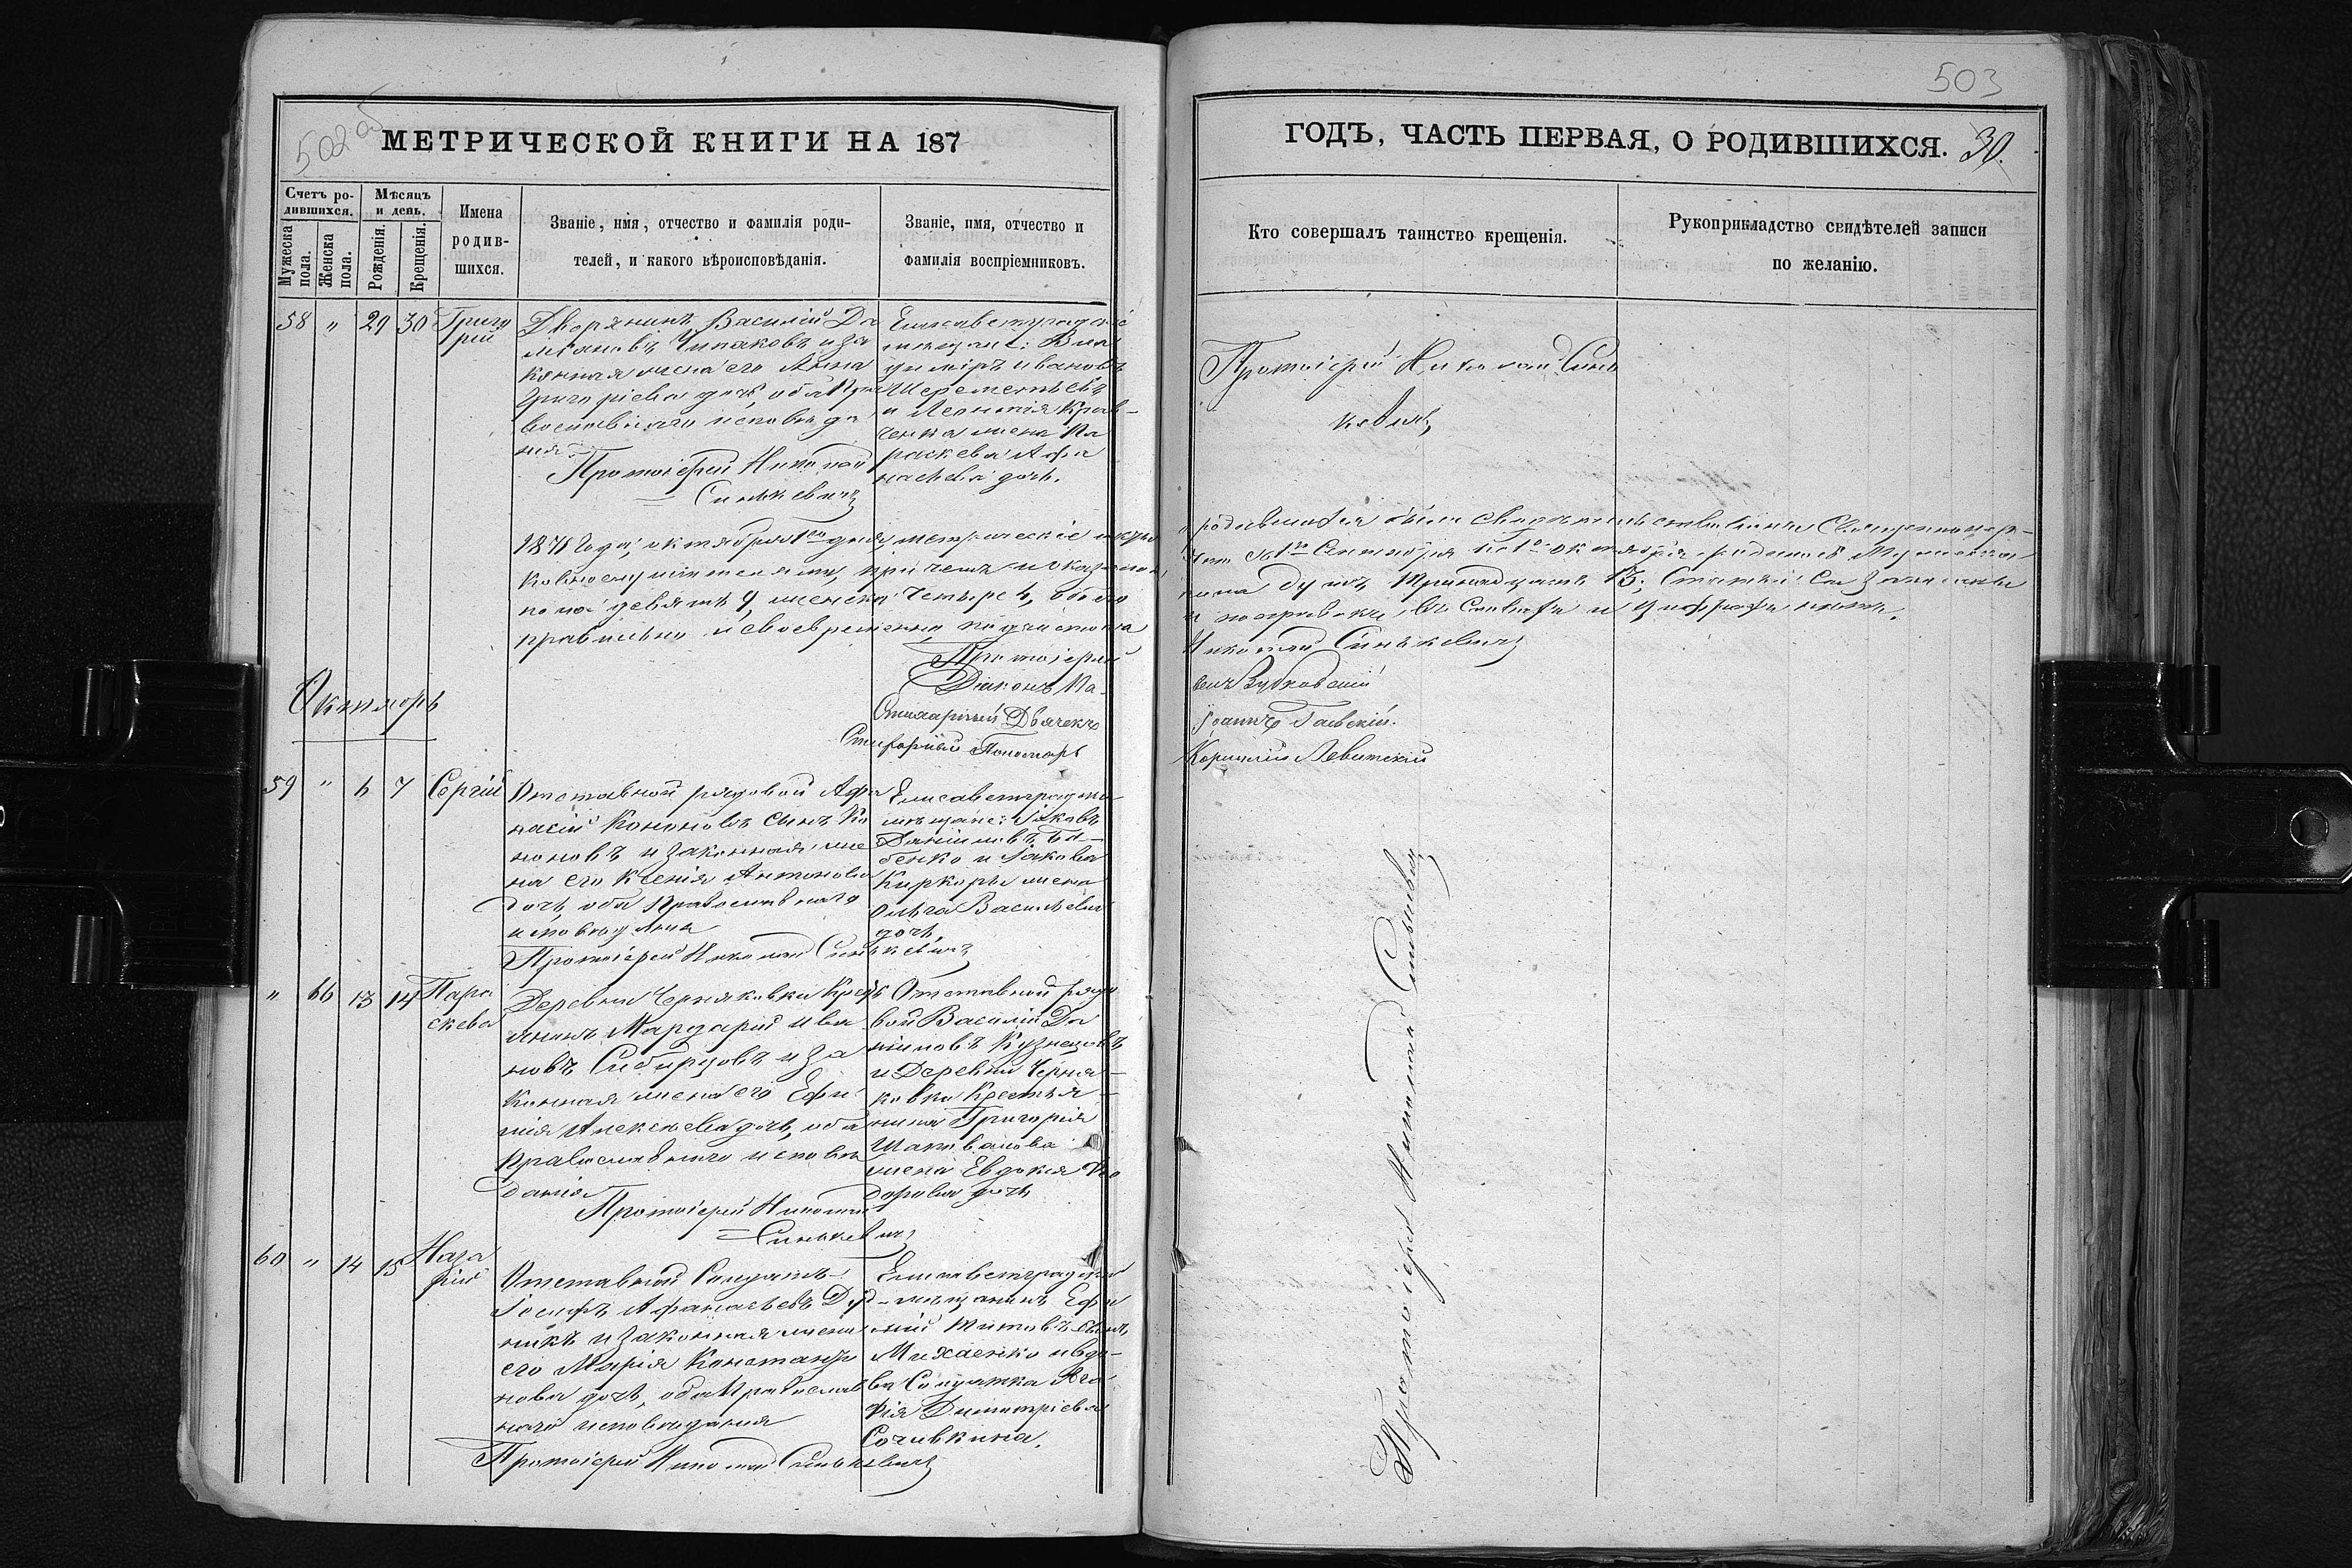 502 об
МЕТРИЧЕСКОЙ КНИГИ НА 187
Счетъ ро-
дившихся.
Мужеска
пола.
Женска
пола.
Мѣсяцъ
и день.
Рожденія.
Крещенія.
Имена
родив-
шихся.
Званіе, имя, отчество и фамилія роди-
телей, и какого вѣроисповѣданія.
Званіе, имя, отчество и
фамилія воспріемниковъ.
58 " 29 30 Григо
рій
Дворянинъ Василій Да
міановъ Чипаковъ и за
конная жена его Анна
Григоріева дочь, оба Пра
вославнаго исповѣда
нія.
Протоіерей Николай
Синькевичъ
Елисаветградскіе
мѣщане: Вла
димiръ Ивановъ
Шереметьевъ
и Леонтія Крав-
ченка жена Па
раскева Афа
насьева дочь.
187 года, октября 1го дня, метрическіе
при чемъ
пола девять 9, женска четыре 4, обоего
правильно и своевременно
Протоіерей
Діаконъ Па-
Стихарный Дьячекъ
Стихарный Пономарь
Октябрь
59 " 6 7 Сергій
Отставной рядовой Афа
насій Кононовъ сынъ Ко
ноновъ и законная же
на его Ксенія Антонова
дочь, оба Православнаго
исповѣданія
Протоіерей Николай Синькевичъ
Елисаветградскіе
мѣщане: Іаковъ
Даниловъ Ба-
бенко и Іакова
Киркоры жена
Ольга Васильева
дочь
" 66 13 14 Пара
скева
Деревни Черняховки Крестья
янинъ Мардарій Ива
новъ Сибирцовъ и за
конная жена его Ефи
мія Алексѣева дочь, оба
Православнаго исповѣ
данія
Протоіерей Николай
Синькевичъ
Отставной рядо
вой Василій Да
ниловъ Кузнецовъ
и Деревни Черня-
ховки Крестья-
нина Григорія
Шаповалова
жена Евдокія Ѳео
дорова дочь
60 " 14 15 Наза
рій
Отставной Солдатъ
Іосифъ Афанасьевъ Дуд-
никъ и законная жена
его Марія Константи
нова дочь, оба Православ
наго исповѣданія
Протоіерей Николай Синькевичъ
Елисаветградскій
мѣщанинъ Ефи
мій Титовъ сынъ
Михаенко и вдо-
ва Солдатка Ага
фія Димитріева
Сочивкина.
503
ГОДЪ, ЧАСТЬ ПЕРВАЯ, О РОДИВШИХСЯ. 30.
Кто совершалъ таинство крещенія.
Рукоприкладство свидѣтелей записи
по желанію.
Протоіерей Николай Синь
кевичъ
о родившихся были свидѣтельствованы Священноцер-
1го Сентября по 1е октября родилось Мужеска
пола душъ тринадцать 13; Статьи
и поправки въ словахъ и цифрахъ нѣтъ.
Николай Синькевичъ
велъ Зубковскій
Іоаннъ Гаевскій.
Корнилій Левитскій
Протоіерей Николай Синькевичъ